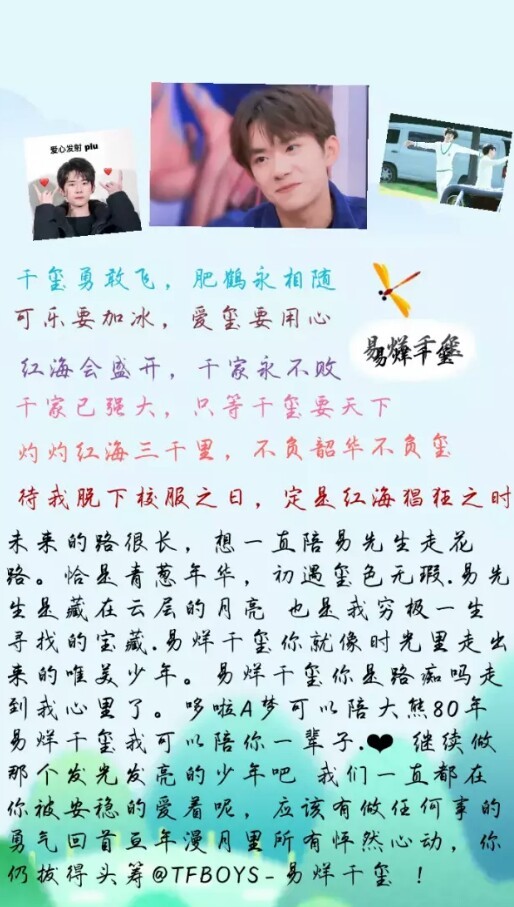 爱心发射 piu
千玺勇敢飞，肥鹤永相随
可乐要加冰，爱玺要用心
易烊千玺
红海会盛开，千家永不败
千家已强大，只等千玺要天下
灼灼红海三千里，不负韶华不负玺
待我脱下校服之日，定是红海猖狂之时
未来的路很长，想一直陪易先生走花
路。恰是青葱年华，初遇玺色无瑕.易先
生是藏在云层的月亮 也是我穷极一生
寻找的宝藏.易烊千玺你就像时光里走出
来的唯美少年。易烊千玺你是路痴吗走
到我心里了。哆啦A梦可以陪大熊80年
易烊千玺我可以陪你一辈子.❤ 继续做
那个发光发亮的少年吧 我们一直都在
你被安稳的爱着呢，应该有做任何事的
勇气回首亘年漫月里所有怦然心动，你
仍拔得头筹@TFBOYS-易烊千玺 ！